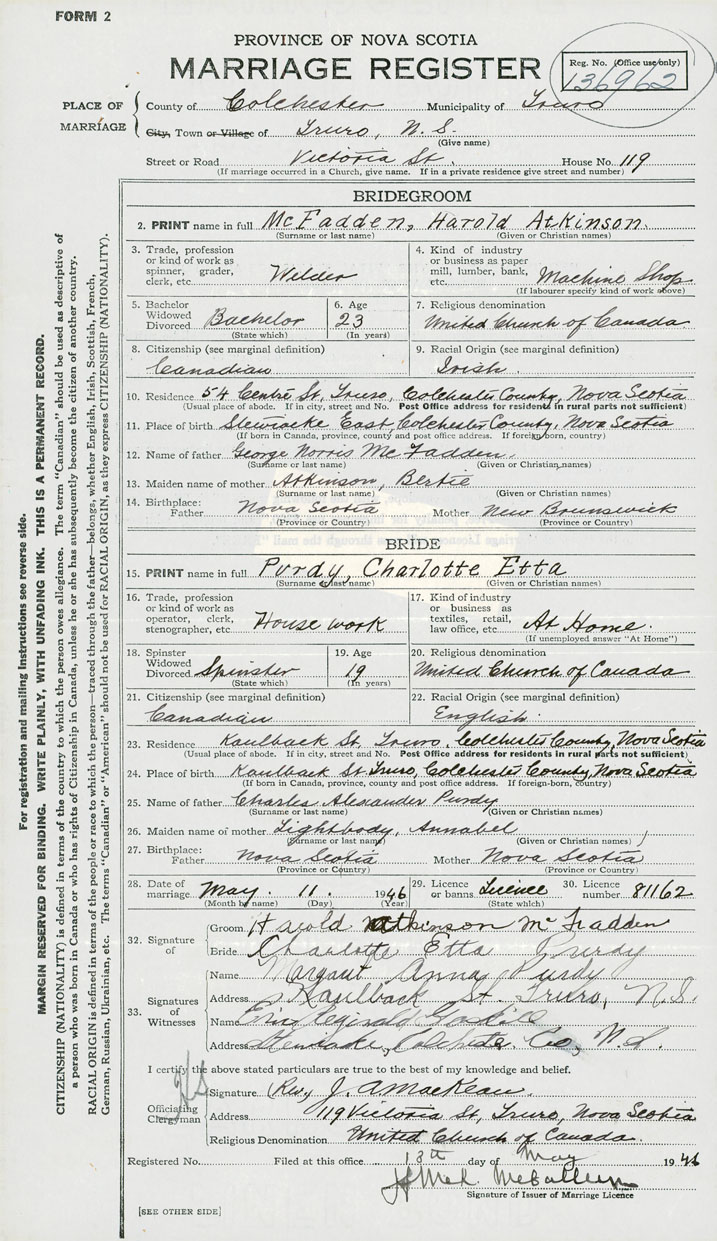 FORM 2
PROVINCE OF NOVA SCOTIA
MARRIAGE REGISTER
Reg. No. (Office use only)
136962
PLACE OF MARRIAGE
County of Colchester Municipality of Truro
City, Town or Village of Truro, N.S.
(Give name)
Street or Road Victoria St. House No. 119
(If marriage occurred in a Church, give name. If in a private residence give street and number)
BRIDEGROOM
2. PRINT name in full McFadden, Harold Atkinson.
(Surname or last name) (Given or Christian names)
3. Trade, profession or kind of work as spinner, grader, clerk, etc. Welder
4. Kind of industry or business as paper mill, lumber, bank, etc. Machine Shop
(If labourer specify kind of work above)
5. Bachelor Widowed Divorced Bachelor
(State which)
6. Age 23
(In years)
7. Religious denomination
United Church of Canada
8. Citizenship (see marginal definition)
Canadian
9. Racial Origin (see marginal definition)
Irish.
10. Residence 54 Centre St, Truro, Colchester County, Nova Scotia
(Usual place of abode. If in city, street and No. Post Office address for residents in rural parts not sufficient)
11. Place of birth Stewiacke East, Colchester County, Nova Scotia
(If born in Canada, province, county and post office address. If foreign born, country)
12. Name of father George Norris McFadden
(Surname or last name) (Given or Christian names)
13. Maiden name of mother Atkinson, Bertie
(Surname or last name) (Given or Christian names)
14. Birthplace: Father Nova Scotia Mother New Brunswick
(Province or Country) (Province or Country)
BRIDE
15. PRINT name in full Purdy, Charlotte Etta
(Surname or last name) (Given or Christian names)
16. Trade, profession or kind of work as operator, clerk, stenographer, etc. House work
17. Kind of industry or business as textiles, retail, law office, etc. At Home.
(If unemployed answer "At Home")
18. Spinster Widowed Divorced Spinster
(State which)
19. Age 19
(In years)
20. Religious denomination
United Church of Canada
21. Citizenship (see marginal definition)
Canadian
22. Racial Origin (see marginal definition)
English.
23. Residence Kaulback St. Truro, Colchester County, Nova Scotia
(Usual place of abode. If in city, street and No. Post Office address for residents in rural parts not sufficient)
24. Place of birth Kaulback St Truro, Colchester County, Nova Scotia
(If born in Canada, province, county and post office address. If foreign-born, country)
25. Name of father Charles Alexander Purdy
(Surname or last name) (Given or Christian names)
26. Maiden name of mother Lightbody, Annabel
(Surname or last name) (Given or Christian names)
27. Birthplace: Father Nova Scotia Mother Nova Scotia
(Province or Country) (Province or Country)
28. Date of marriage May. 11. 1946
(Month by name) (Day) (Year)
29. Licence or banns Licence
(State which)
30. Licence number 81162
32. Signature of
Groom Harold Atkinson McFadden
Bride Charlotte Etta Purdy
33. Signatures of Witnesses
Name Margaret Anna Purdy
Address Kaulback St. Truro, N.S.
Name Reginald
Address Colchester Co, N.S.
I certify the above stated particulars are true to the best of my knowledge and belief.
Officiating Clergyman
Signature (Rev.) J. A MacKean.
Address 119 Victoria St, Truro, Nova Scotia
Religious Denomination United Church of Canada.
Registered No. Filed at this office 13th day of May 1946
McCallum
Signature of Issuer of Marriage Licence
[SEE OTHER SIDE]
For registration and mailing instructions see reverse side.
MARGIN RESERVED FOR BINDING. WRITE PLAINLY, WITH UNFADING INK. THIS IS A PERMANENT RECORD.
CITIZENSHIP (NATIONALITY) is defined in terms of the country to which the person owes allegiance. The term "Canadian" should be used as descriptive of
a person who was born in Canada or who has rights of Citizenship in Canada, unless he or she has subsequently become the citizen of another country.
RACIAL ORIGIN is defined in terms of the people or race to which the person—traced through the father—belongs, whether English, Irish, Scottish, French,
German, Russian, Ukrainian, etc. The terms "Canadian" or "American" should not be used for RACIAL ORIGIN, as they express CITIZENSHIP (NATIONALITY).